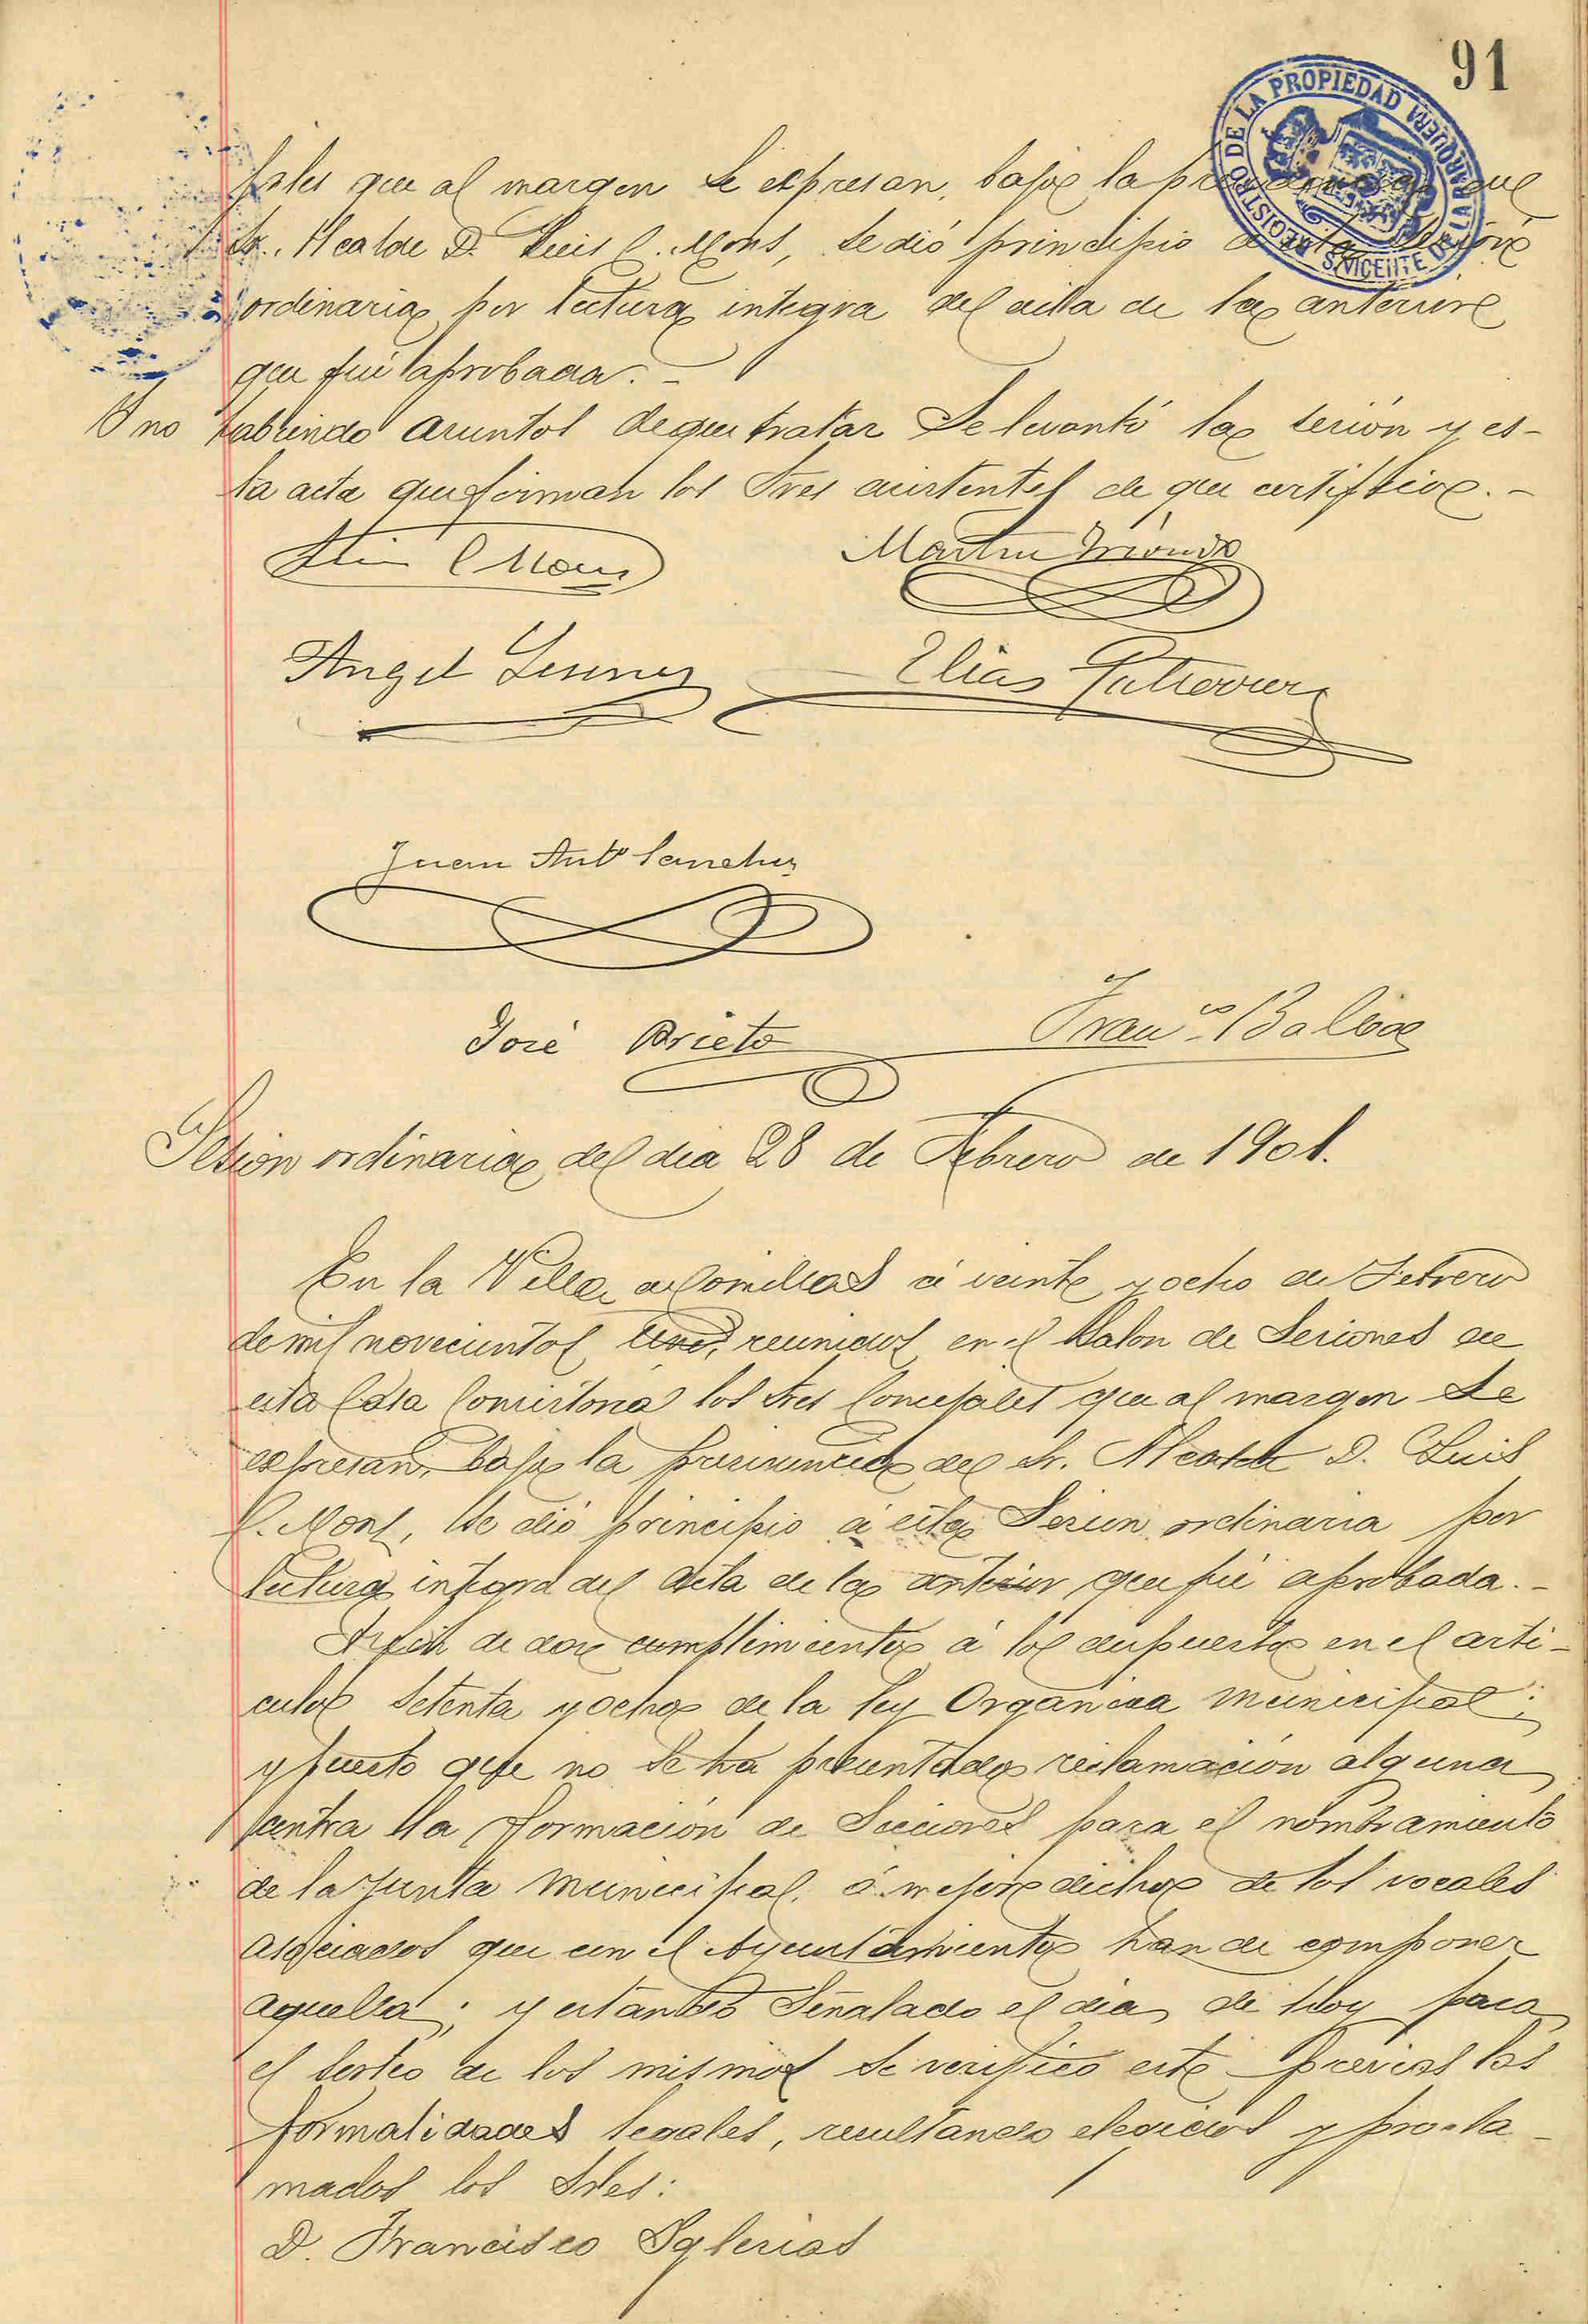 91
REGISTRO DE LA PROPIEDAD
S. VICENTE DE LA BARQUERA
jales que al margen se expresan, bajo la presidencia del
Sr. Alcalde D. Luis C. Mons, se dió principio a esta sesión
ordinaria por lectura integra del acta de la anterior
que fué aprobada. -
Y no habiendo asuntos de que tratar se levantó la sesión y es-
ta acta que firman los Sres asistentes de que certifico. -
Luis C Mons
Martin
Angel
Elias Gutierrez
Juan Antº Sanchez
José Prieto
Franco Balboa
Sesion ordinaria del dia 28 de Febrero de 1901.
En la Villa de Comillas á veinte y ocho de Febrero
de mil novecientos uno, reunidos en el Salon de Sesiones de
esta Casa Consistorial los Sres Concejales que al margen se
expresan, bajo la presidencia del Sr. Alcalde D. Luis
C. Mons, se dió principio á esta Sesion ordinaria por
lectura integra del acta de la anterior que fué aprobada. -
A fin de dar cumplimiento á lo dispuesto en el arti-
culo setenta y ocho de la ley Organica municipal;
y puesto que no se ha presentado reclamación alguna
contra la formación de Secciones para el nombramiento
de la Junta municipal, ó mejor dicho de los vocales
asociados que con el Ayuntamiento han de componer
aquella; y estando señalado el dia de hoy para
el sorteo de los mismos se verifico este previas las
formalidades legales, resultando elegidos y procla-
mados los Sres:
D. Francisco Iglesias